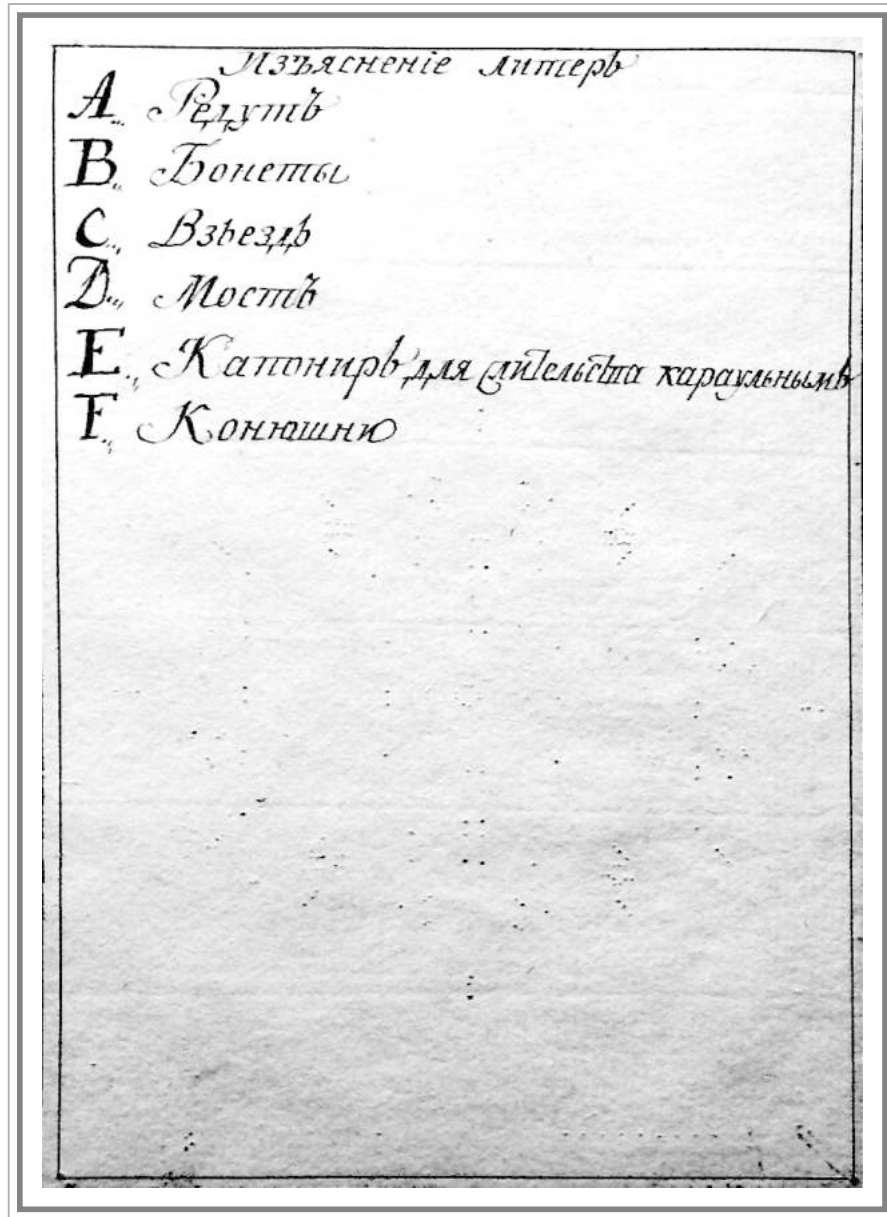 Изъясненіе литеръ
A.,, Редутъ
B.,, Бонеты
C.,, Взъездъ
D.,, Мостъ
E.,, Капониръ для жительства караульнымъ
F.,, Конюшню